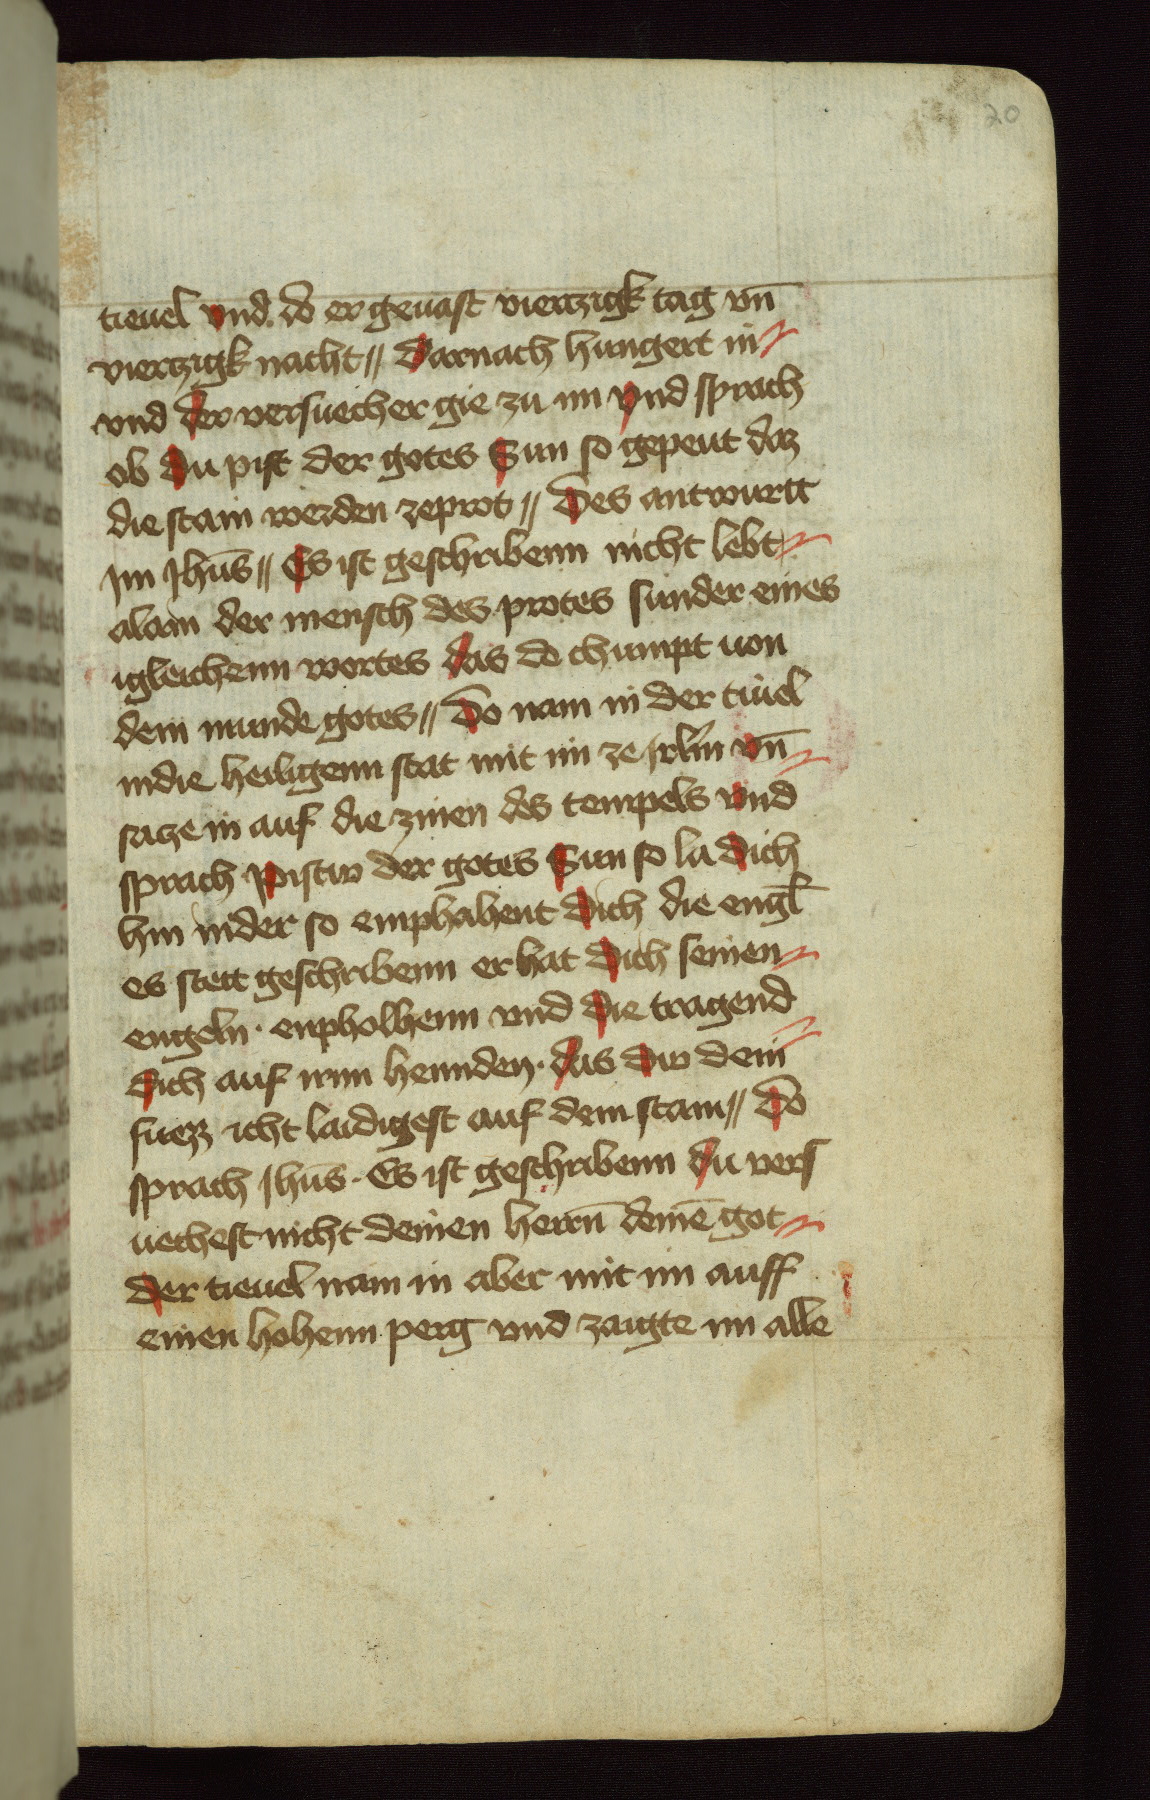 20
tieuel vnd do er geuast viertzigk tag vn̄
viertzigk nacht // Darnach hungert in
vnd der versuecher gie zu im vnd sprach
ob du pist der gotes Sun so gepeut daz
die stain werden zeprot // Des antwurtt
Im Jhūs // Es ist geschribenn nicht lebt
alain der mensch des protes sunder eines
igleichenn wortes das do chumpt uon
dem munde gotes // Do nam in der tiuel
indie heiligenn stat mit im ze Jrl̄m vn̄
satze in auf die zinen des tempels vnd
sprach Pistw der gotes Sun so la dich
hin nider so emphahent dich die engl̄
es stett geschribenn er hat dich seinen
engeln · enpholhenn vnd die tragend
dich auf irnn hennden · das dw dein
fuezz icht laidigest auf dem stain // Do
sprach Jhūs · Es ist geschribenn du vers
uechest nicht deinen herrn̄ deinē got
der tieuel nam in aber mit im auff
einen hohenn perg vnd zaigte im alle